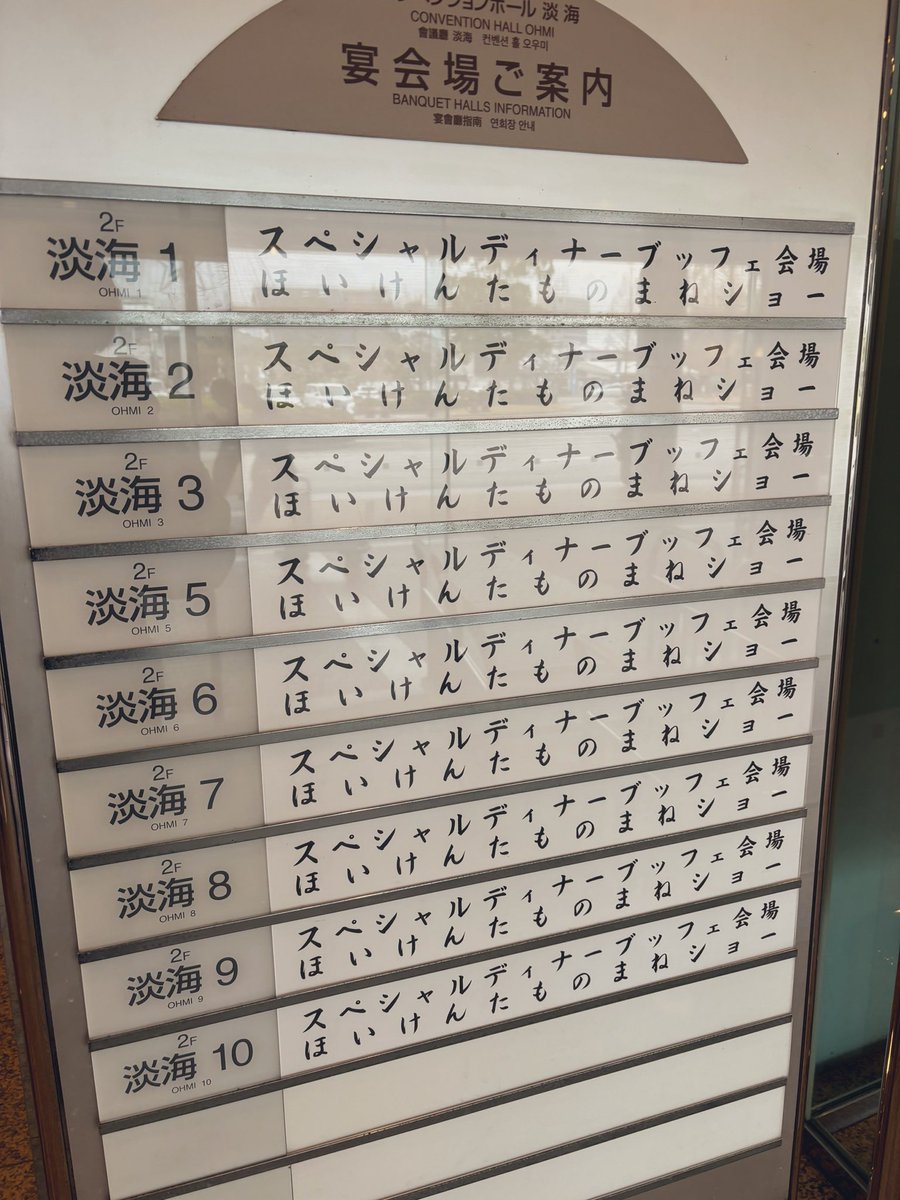 ンベンションホール 淡海
CONVENTION HALL OHMI
會議廳 淡海 컨벤션 홀 오우미
宴会場ご案内
BANQUET HALLS INFORMATION
宴會廳指南 연회장 안내
2F
淡海 1
OHMI 1
スペシャルディナーブッフェ会場
ほいけんたものまねショー
2F
淡海 2
OHMI 2
スペシャルディナーブッフェ会場
ほいけんたものまねショー
2F
淡海 3
OHMI 3
スペシャルディナーブッフェ会場
ほいけんたものまねショー
2F
淡海 5
OHMI 5
スペシャルディナーブッフェ会場
ほいけんたものまねショー
2F
淡海 6
OHMI 6
スペシャルディナーブッフェ会場
ほいけんたものまねショー
2F
淡海 7
OHMI 7
スペシャルディナーブッフェ会場
ほいけんたものまねショー
2F
淡海 8
OHMI 8
スペシャルディナーブッフェ会場
ほいけんたものまねショー
2F
淡海 9
OHMI 9
スペシャルディナーブッフェ会場
ほいけんたものまねショー
2F
淡海 10
OHMI 10
スペシャルディナーブッフェ会場
ほいけんたものまねショー